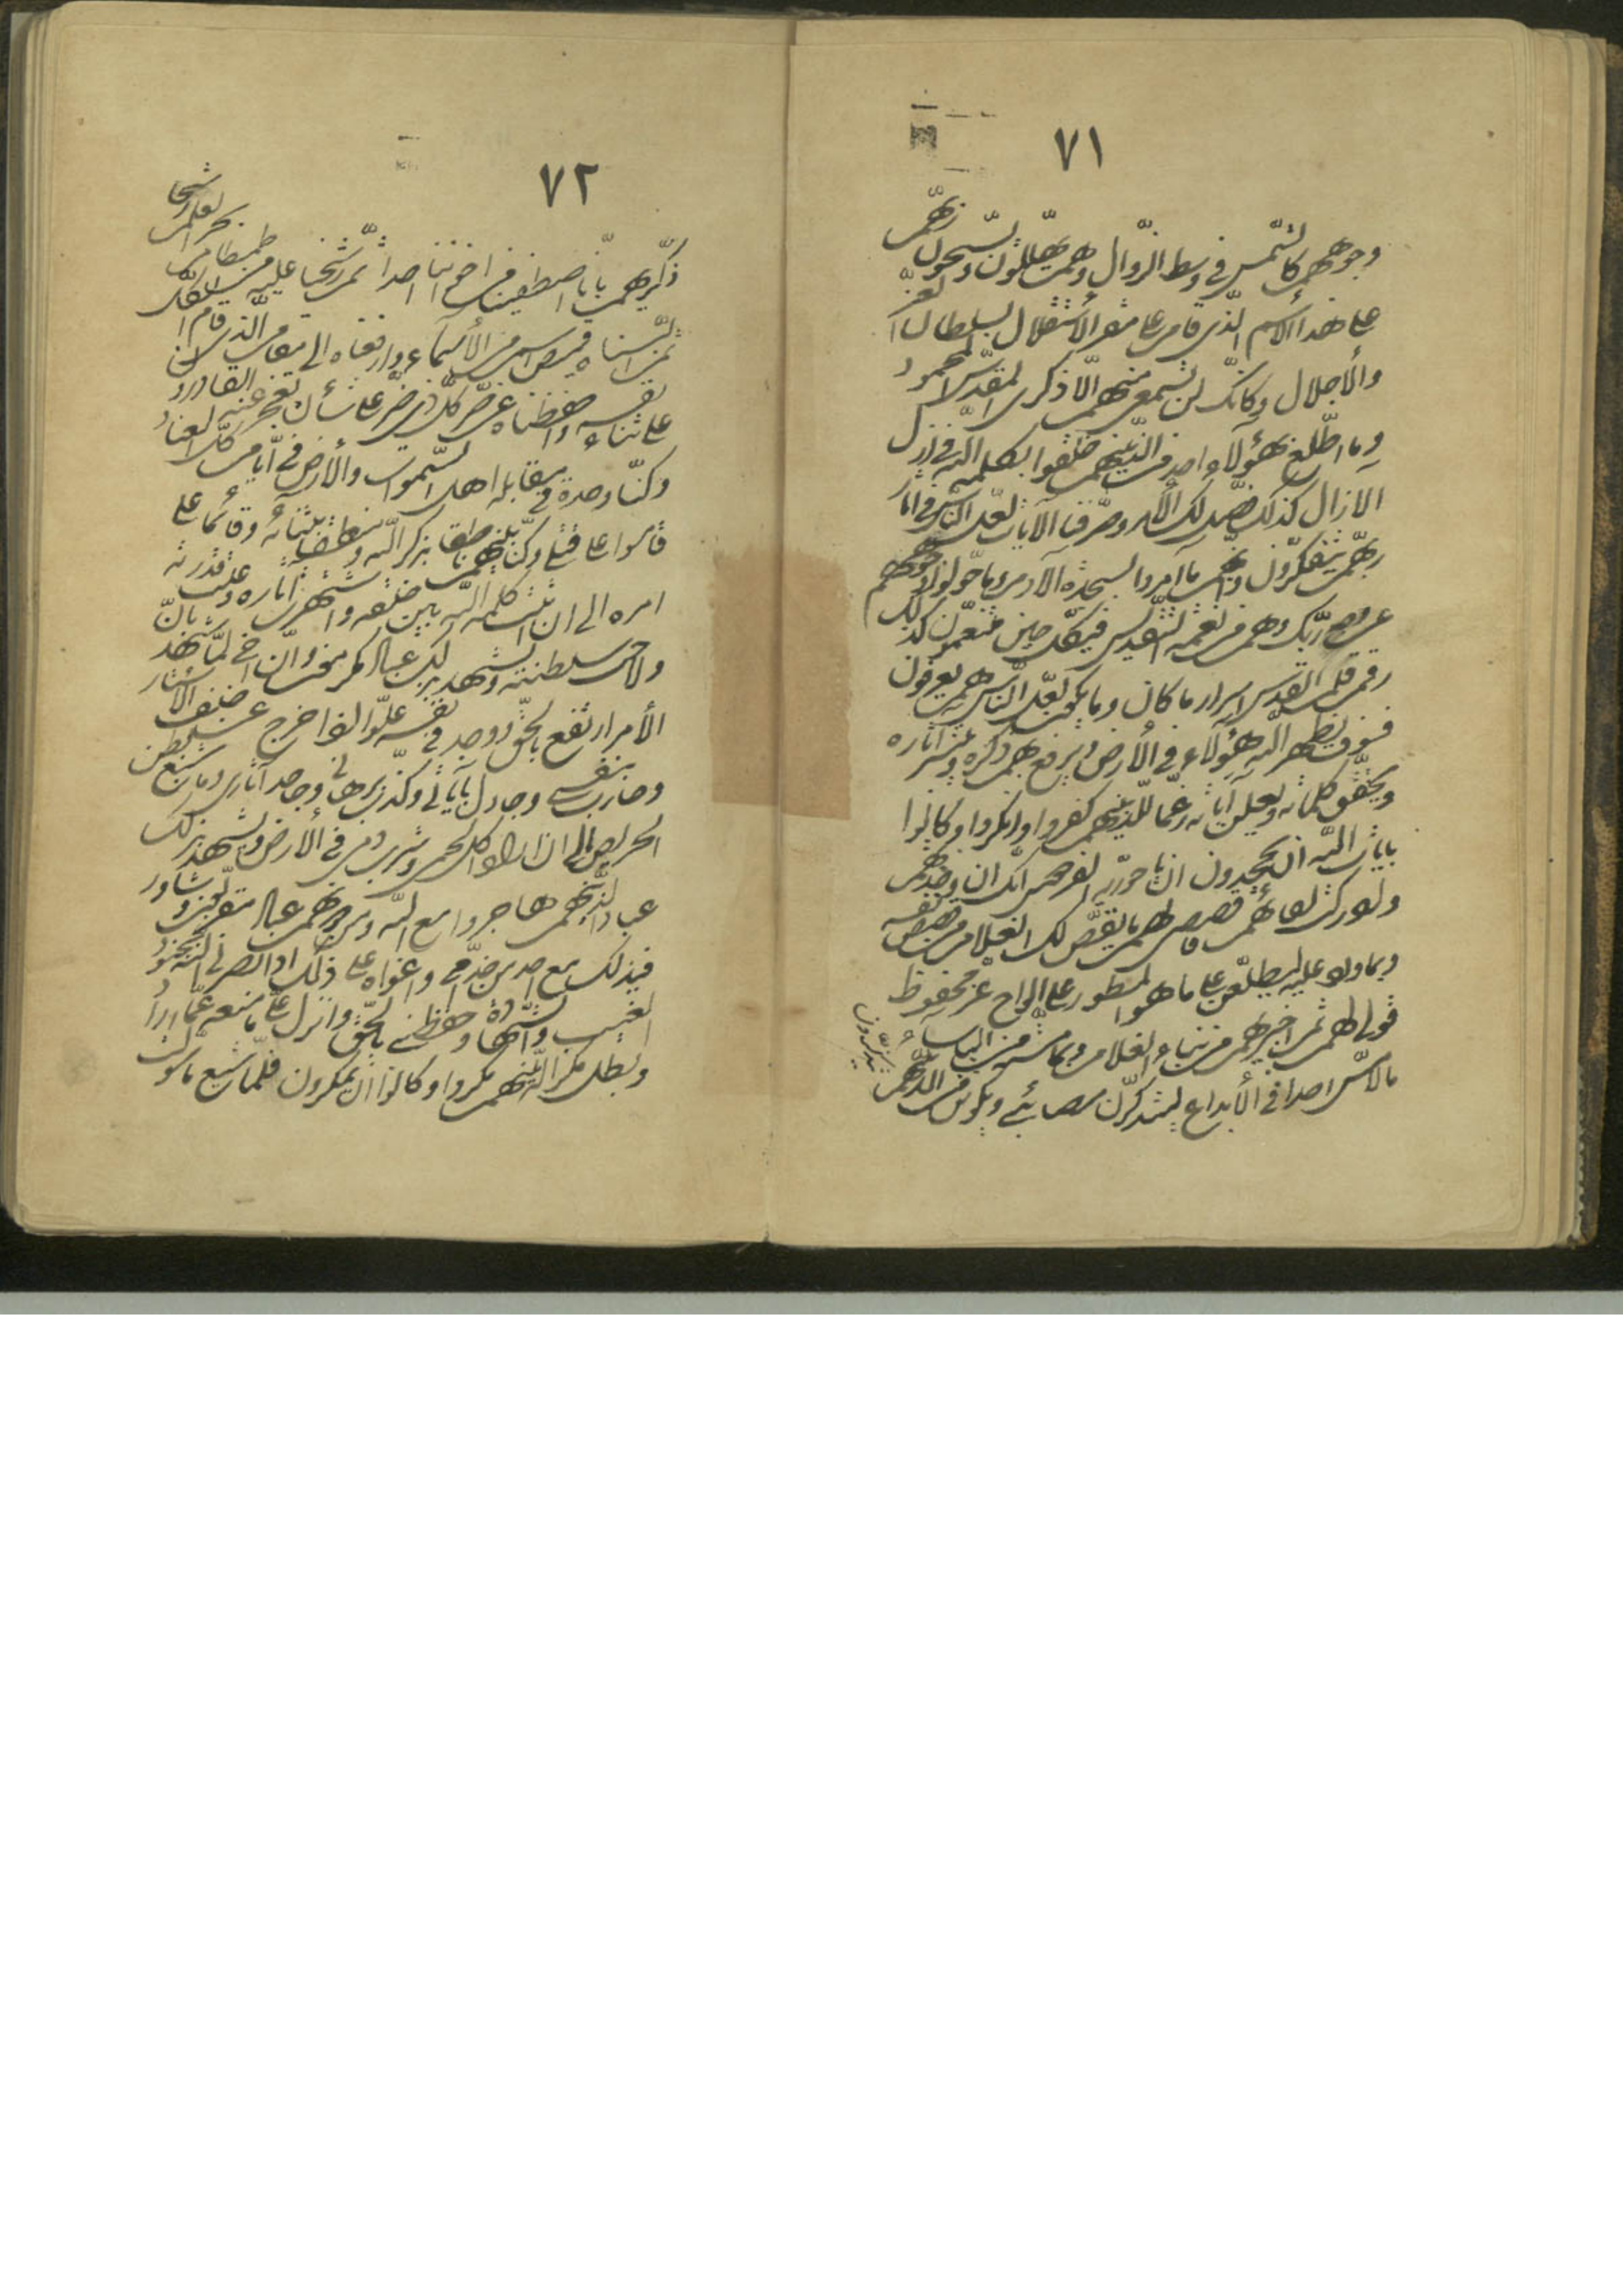 ٧١
وجوههم كالشمس في وسط الزوال وهم يهللون ويسبحون ربهم
على هذا الاسم الذي قام على مقر الاستقلال بسلطان العز
والأجلال وكانك لن تسمع منهم الا ذكري المقدس المحمود
وما اطلع بهؤلاء احد من الذينهم خلقوا بكلمة الله في ازل
الازال كذلك فصلنا لك الامر وصرفنا الآيات لعل الناس في آثار
ربهم يتفكرون وانهم ما امروا بسجدة الآدم وما حولوا وجوههم
عن وجه ربك وهم من نعمة التقديس في كل حين متنعمون كذلك
رقم قلم القدس اسرار ما كان وما يكون لعل الناس هم يعرفون
فسوف يظهر الله هؤلاء في الأرض ويرفع بهم ذكره وينشر آثاره
ويحقق كلماته ويعلن آياته رغما للذينهم كفروا وانكروا وكانوا
بايات الله ان يجحدون ان يا حورية الفردوس انك ان وجدتهم
وادركت لقائهم قصصي لهم بما يقص لك الغلام من قصص نفسه
وبما ورد عليه ليطلعن على ما هو المسطور على الواح عز محفوظ
قولي لهم ثم اخبريهم من نباء الغلام وبما مسته من البأساء
ما لا مس احدا في الأبداع ليتذكرن مصائبي ويكونن من الذينهم
يتذكرون
٧٢
ذكريهم بانا اصطفينا من اخوتنا احدا ثم رشحنا عليه من طمطام بحر العلم رشحا
ثم البسناه قميص اسم من الأسماء وارفعناه الى مقام الذي قام الكل
على ثناء نفسه واحفظناه عن ضر كل ذي ضر على شأن يعجز عنه القادرون
وكنا وحدة في مقابلة اهل السموات والأرض في ايام كل العباد
قاموا على قتلي وكنا بينهم ناطقا بذكر الله ومنطقا بثنائه وقائما على
امره الى ان ثبتت كلمة الله بين خلقه واشتهرت آثاره وعلت قدرته
ولاحت سلطنته ويشهد بذلك عباد مكرمون وان اخي لما شهد بان
الأمر ارتفع بالحق ووجد في نفسه علوا اذا خرج عن خلف الاستار
وحارب بنفسي وجادل بآياتي وكذب برهاني وجاحد آثاري وما شبع بطن
الحريص الى ان اراد اكل لحمي وشرب دمي في الأرض ويشهد بذلك
عباد الذينهم هاجروا مع الله ومن دونهم عباد مقربون وشاور
في ذلك مع احد من خدمي واغواه على ذلك اذا نصرني الله بجنود
الغيب والشهادة وحفظني بالحق وانزل علي ما منعه عما اراد
وبطل مكر الذينهم مكروا وكانوا ان يمكرون فلما شيع ما سولت